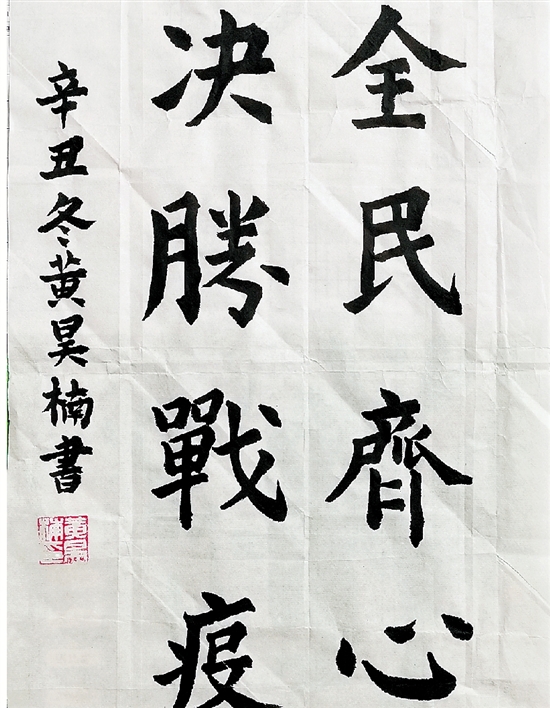 全民齊心
决勝戰疫
辛丑冬黄昊楠書